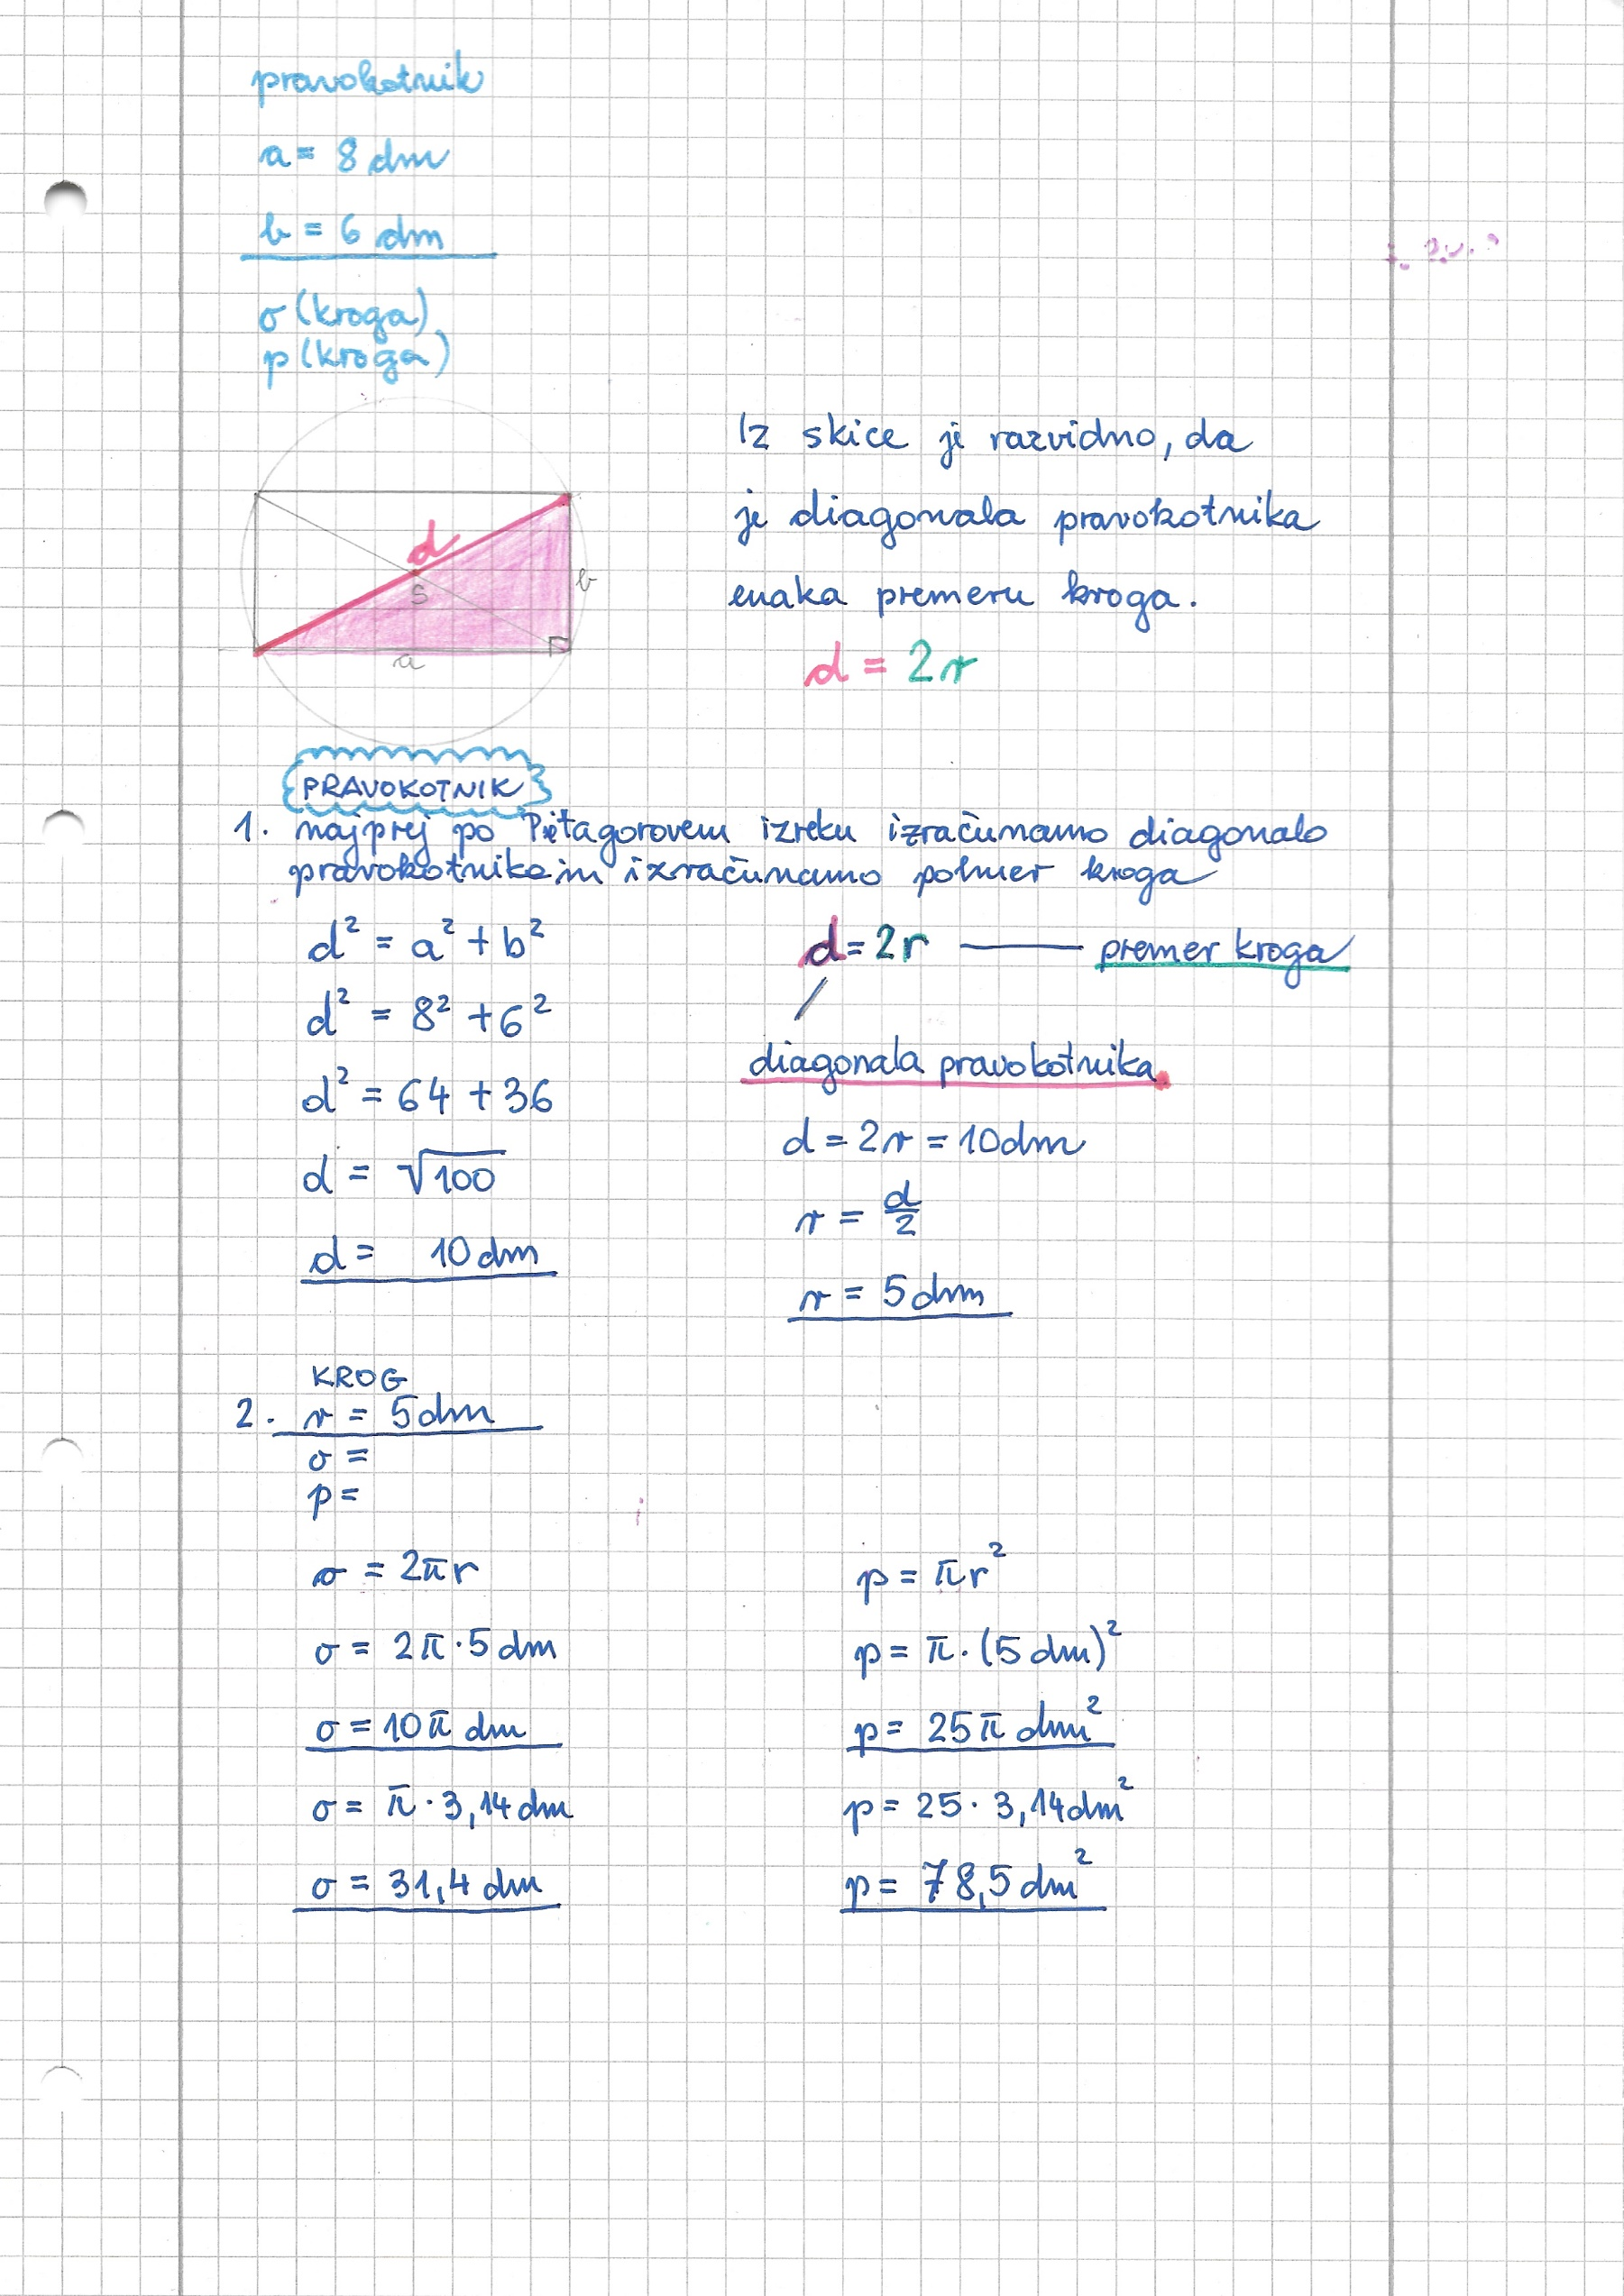 pravokotnik
a = 8 dm
b = 6 dm
o (kroga),
p (kroga)
Iz skice je razvidno, da
je diagonala pravokotnika
enaka premeru kroga.
d = 2r
d
S
b
a
PRAVOKOTNIK
1. najprej po Pitagorovem izreku izračunamo diagonalo
pravokotnika in izračunamo polmer kroga
d² = a² + b²
d² = 8² + 6²
d² = 64 + 36
d = √100
d = 10 dm
d = 2r — premer kroga
diagonala pravokotnika
d = 2r = 10 dm
r = d/2
r = 5 dm
KROG
2. r = 5 dm
o =
p =
o = 2πr
o = 2π · 5 dm
o = 10π dm
o = π · 3,14 dm
o = 31,4 dm
p = πr²
p = π · (5 dm)²
p = 25π dm²
p = 25 · 3,14 dm²
p = 78,5 dm²